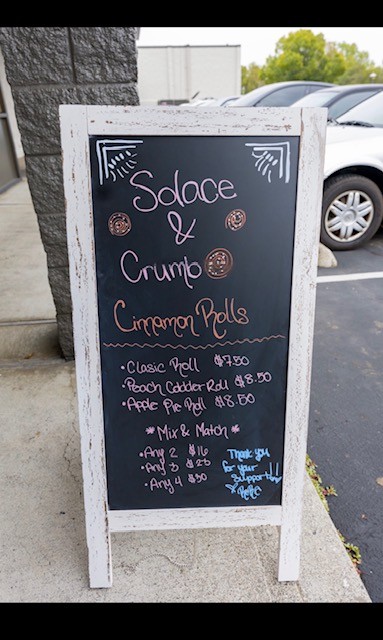 Solace
&
Crumb
Cinnamon Rolls
• Clasic Roll $7.50
• Peach Cobbler Roll $8.50
• Apple Pie Roll $8.50
* Mix & Match *
• Any 2 $16
• Any 3 $23
• Any 4 $30
Thank you
for your
support!!